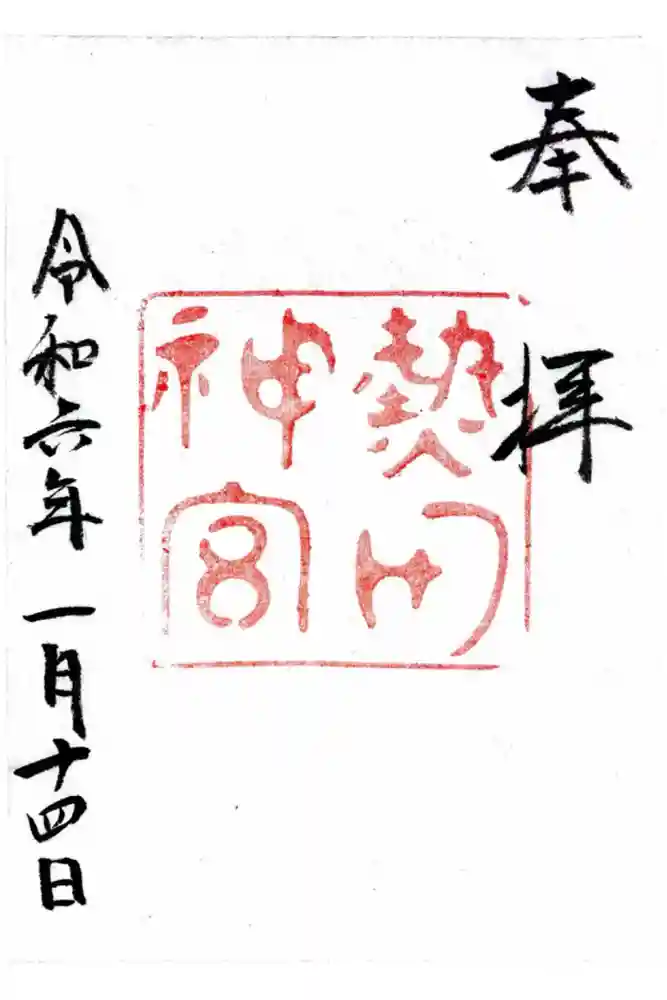 奉拝
熱田
神宮
令和六年一月十四日